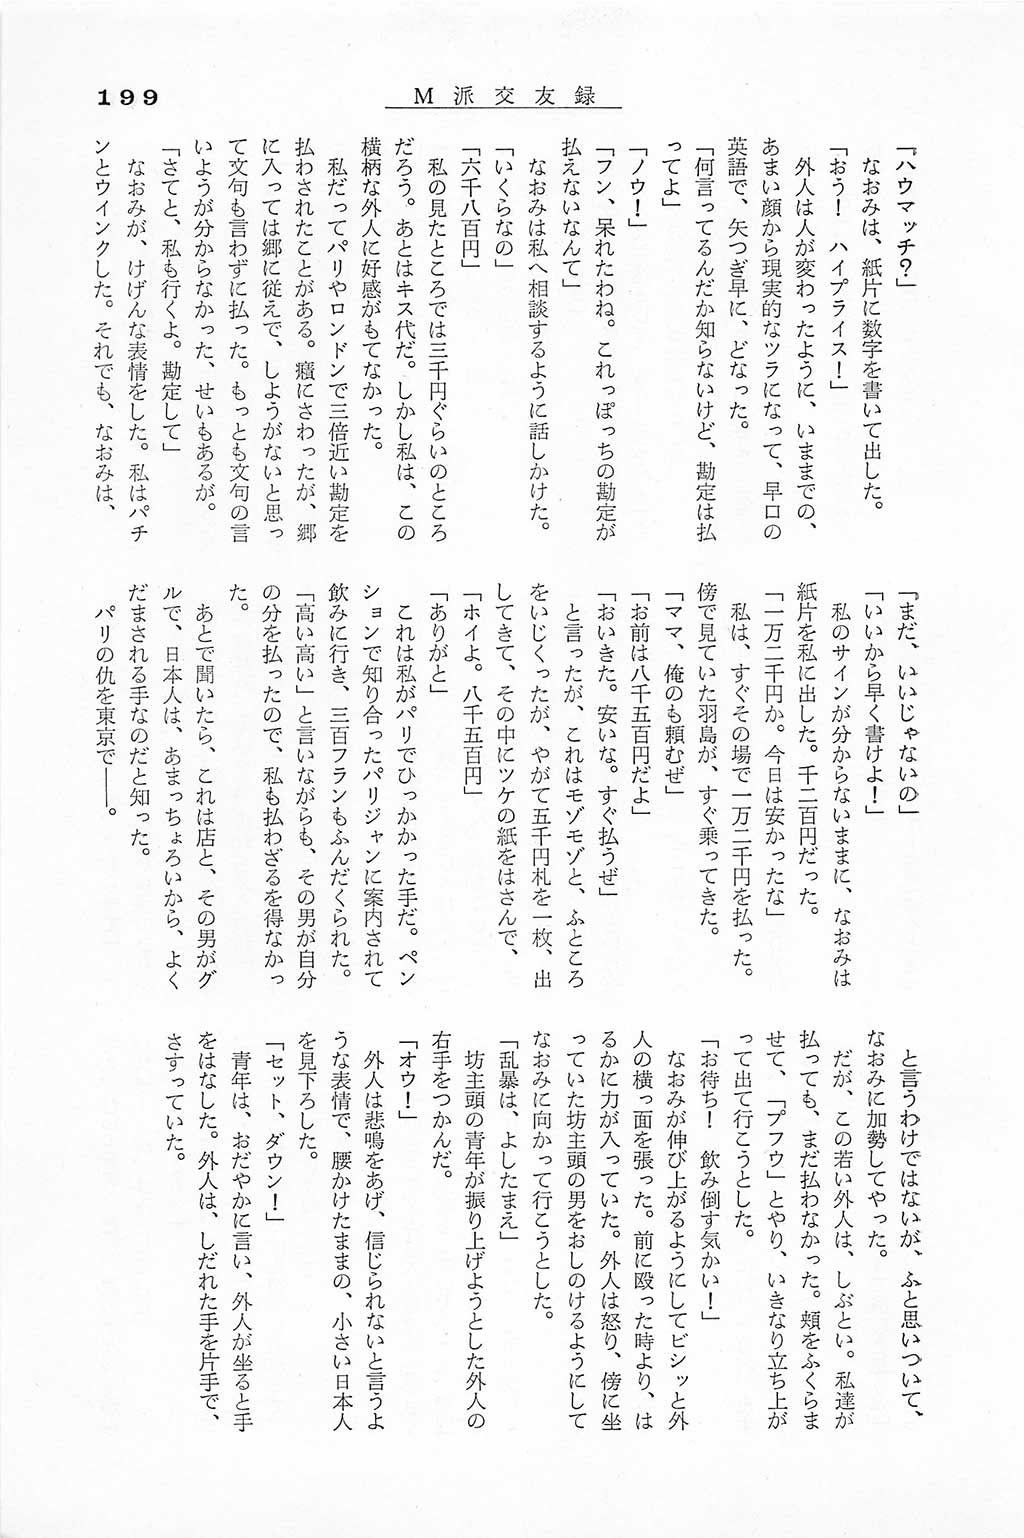 199
M派交友録
「ハウマッチ？」
なおみは、紙片に数字を書いて出した。
「おう！　ハイプライス！」
外人は人が変わったように、いままでの、
あまい顔から現実的なツラになって、早口の
英語で、矢つぎ早に、どなった。
「何言ってるんだか知らないけど、勘定は払
ってよ」
「ノウ！」
「フン、呆れたわね。これっぽっちの勘定が
払えないなんて」
なおみは私へ相談するように話しかけた。
「いくらなの」
「六千八百円」
私の見たところでは三千円ぐらいのところ
だろう。あとはキス代だ。しかし私は、この
横柄な外人に好感がもてなかった。
私だってパリやロンドンで三倍近い勘定を
払わされたことがある。癪にさわったが、郷
に入っては郷に従えで、しようがないと思っ
て文句も言わずに払った。もっとも文句の言
いようが分からなかった、せいもあるが。
「さてと、私も行くよ。勘定して」
なおみが、けげんな表情をした。私はパチ
ンとウインクした。それでも、なおみは、
「まだ、いいじゃないの」
「いいから早く書けよ！」
私のサインが分からないままに、なおみは
紙片を私に出した。千二百円だった。
「一万二千円か。今日は安かったな」
私は、すぐその場で一万二千円を払った。
傍で見ていた羽島が、すぐ乗ってきた。
「ママ、俺のも頼むぜ」
「お前は八千五百円だよ」
「おいきた。安いな。すぐ払うぜ」
と言ったが、これはモゾモゾと、ふところ
をいじくったが、やがて五千円札を一枚、出
してきて、その中にツケの紙をはさんで、
「ホイよ。八千五百円」
「ありがと」
これは私がパリでひっかかった手だ。ペン
ションで知り合ったパリジャンに案内されて
飲みに行き、三百フランもふんだくられた。
「高い高い」と言いながらも、その男が自分
の分を払ったので、私も払わざるを得なかっ
た。
あとで聞いたら、これは店と、その男がグ
ルで、日本人は、あまっちょろいから、よく
だまされる手なのだと知った。
パリの仇を東京で――。
と言うわけではないが、ふと思いついて、
なおみに加勢してやった。
だが、この若い外人は、しぶとい。私達が
払っても、まだ払わなかった。頬をふくらま
せて、「プフウ」とやり、いきなり立ち上が
って出て行こうとした。
「お待ち！　飲み倒す気かい！」
なおみが伸び上がるようにしてビシッと外
人の横っ面を張った。前に殴った時より、は
るかに力が入っていた。外人は怒り、傍に坐
っていた坊主頭の男をおしのけるようにして
なおみに向かって行こうとした。
「乱暴は、よしたまえ」
坊主頭の青年が振り上げようとした外人の
右手をつかんだ。
「オウ！」
外人は悲鳴をあげ、信じられないと言うよ
うな表情で、腰かけたままの、小さい日本人
を見下ろした。
「セット、ダウン！」
青年は、おだやかに言い、外人が坐ると手
をはなした。外人は、しだれた手を片手で、
さすっていた。